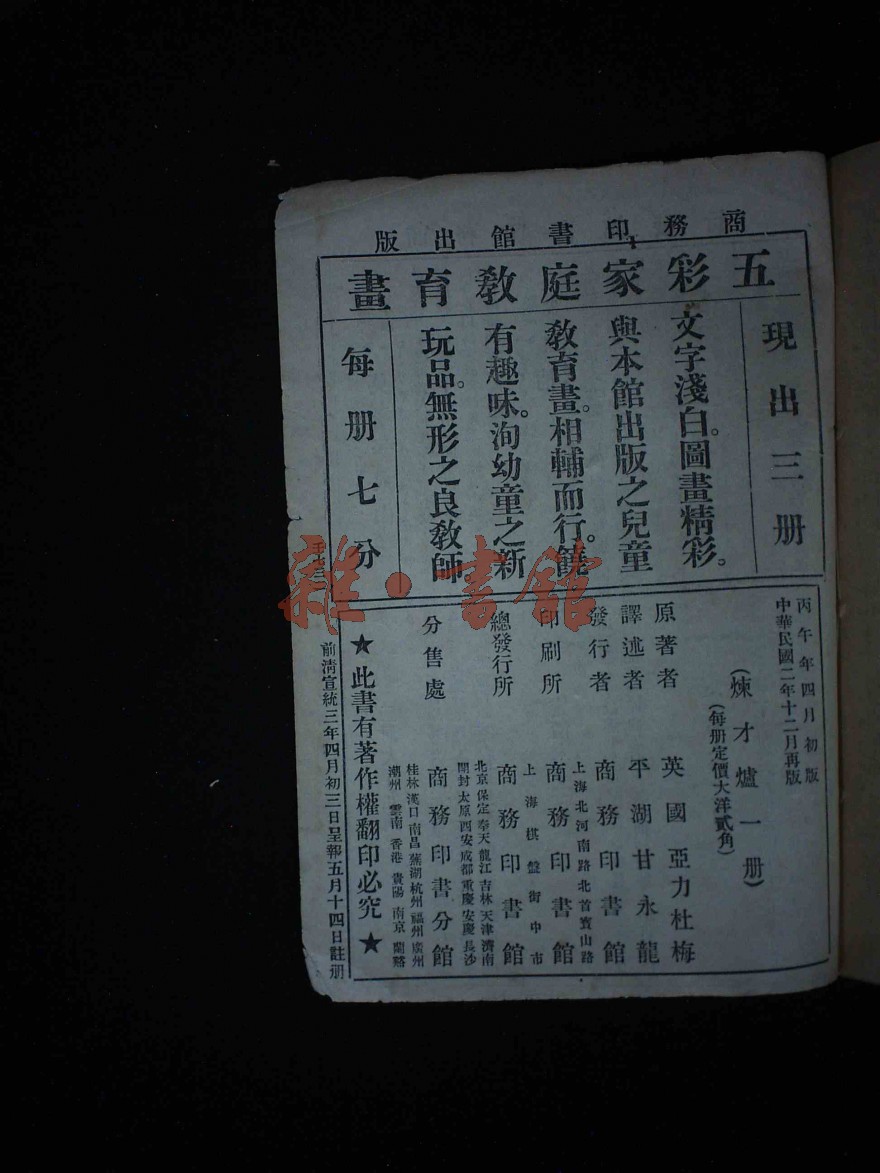 商務印書館出版
五彩家庭教育畫
現出三册
文字淺白。圖畫精彩。
與本館出版之兒童
教育畫。相輔而行。饒
有趣味。洵幼童之新
玩品。無形之良教師
每册七分
丙午年四月初版
中華民國二年十二月再版
(煉才爐一册)
(每册定價大洋貳角)
原著者 英國亞力杜梅
譯述者 平湖甘永龍
發行者 商務印書館
上海北河南路北首寶山路
印刷所 商務印書館
上海棋盤街中市
總發行所 商務印書館
北京保定奉天龍江吉林天津濟南
開封太原西安成都重慶安慶長沙
分售處 商務印書分館
桂林漢口南昌蕪湖杭州福州廣州
潮州雲南香港貴陽南京蘭谿
★此書有著作權翻印必究★
前清宣統三年四月初三日呈報五月十四日註册
雜·書館